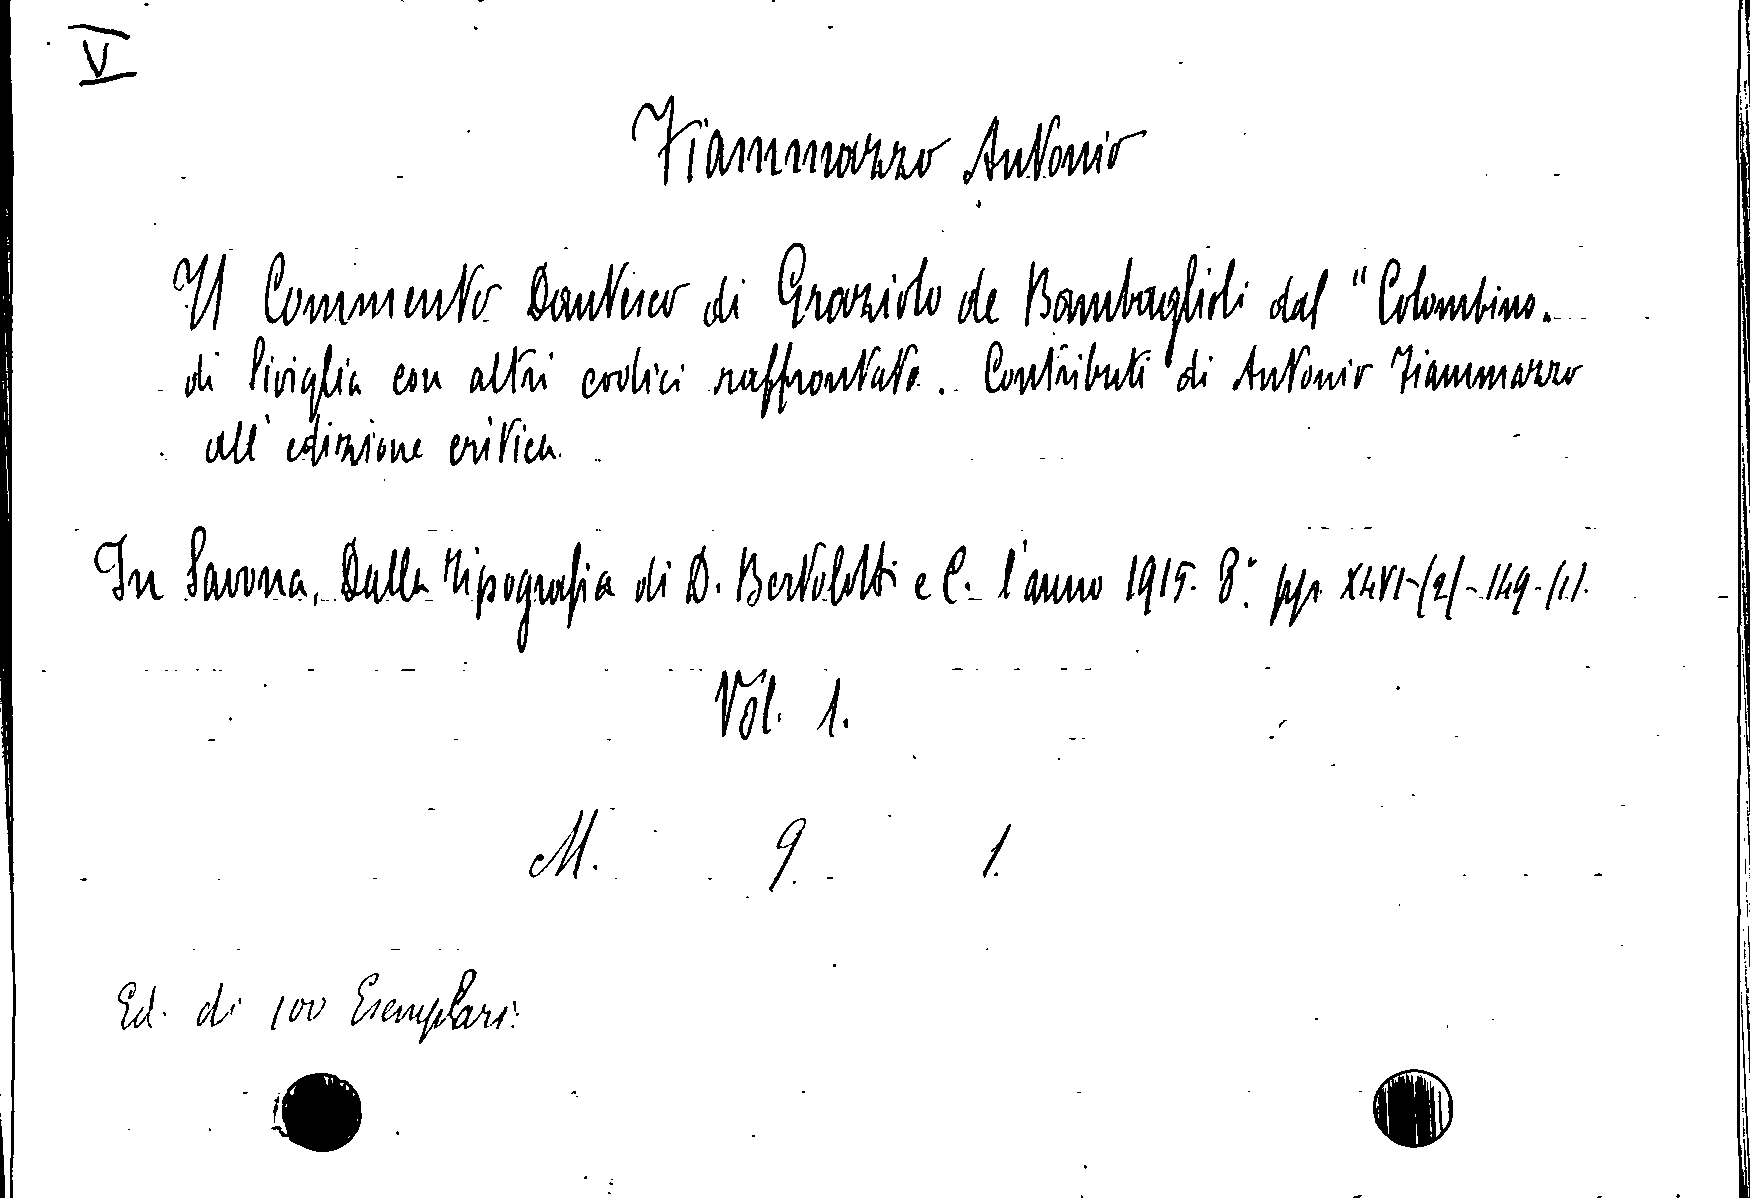 V
Fiammazzo Antonio
Il Commento Dantesco di Graziolo de Bambaglioli dal "Colombino.
di Siviglia con altri codici raffrontato. Contributi di Antonio Fiammazzo
all'edizione critica.
In Savona, Dalla Tipografia di D. Bertolotti e C. l'anno 1915. 8.° pp. XLVI-(2)-149-(1).
Vol. 1.
M. 9. 1.
Ed. di 100 Esemplari.